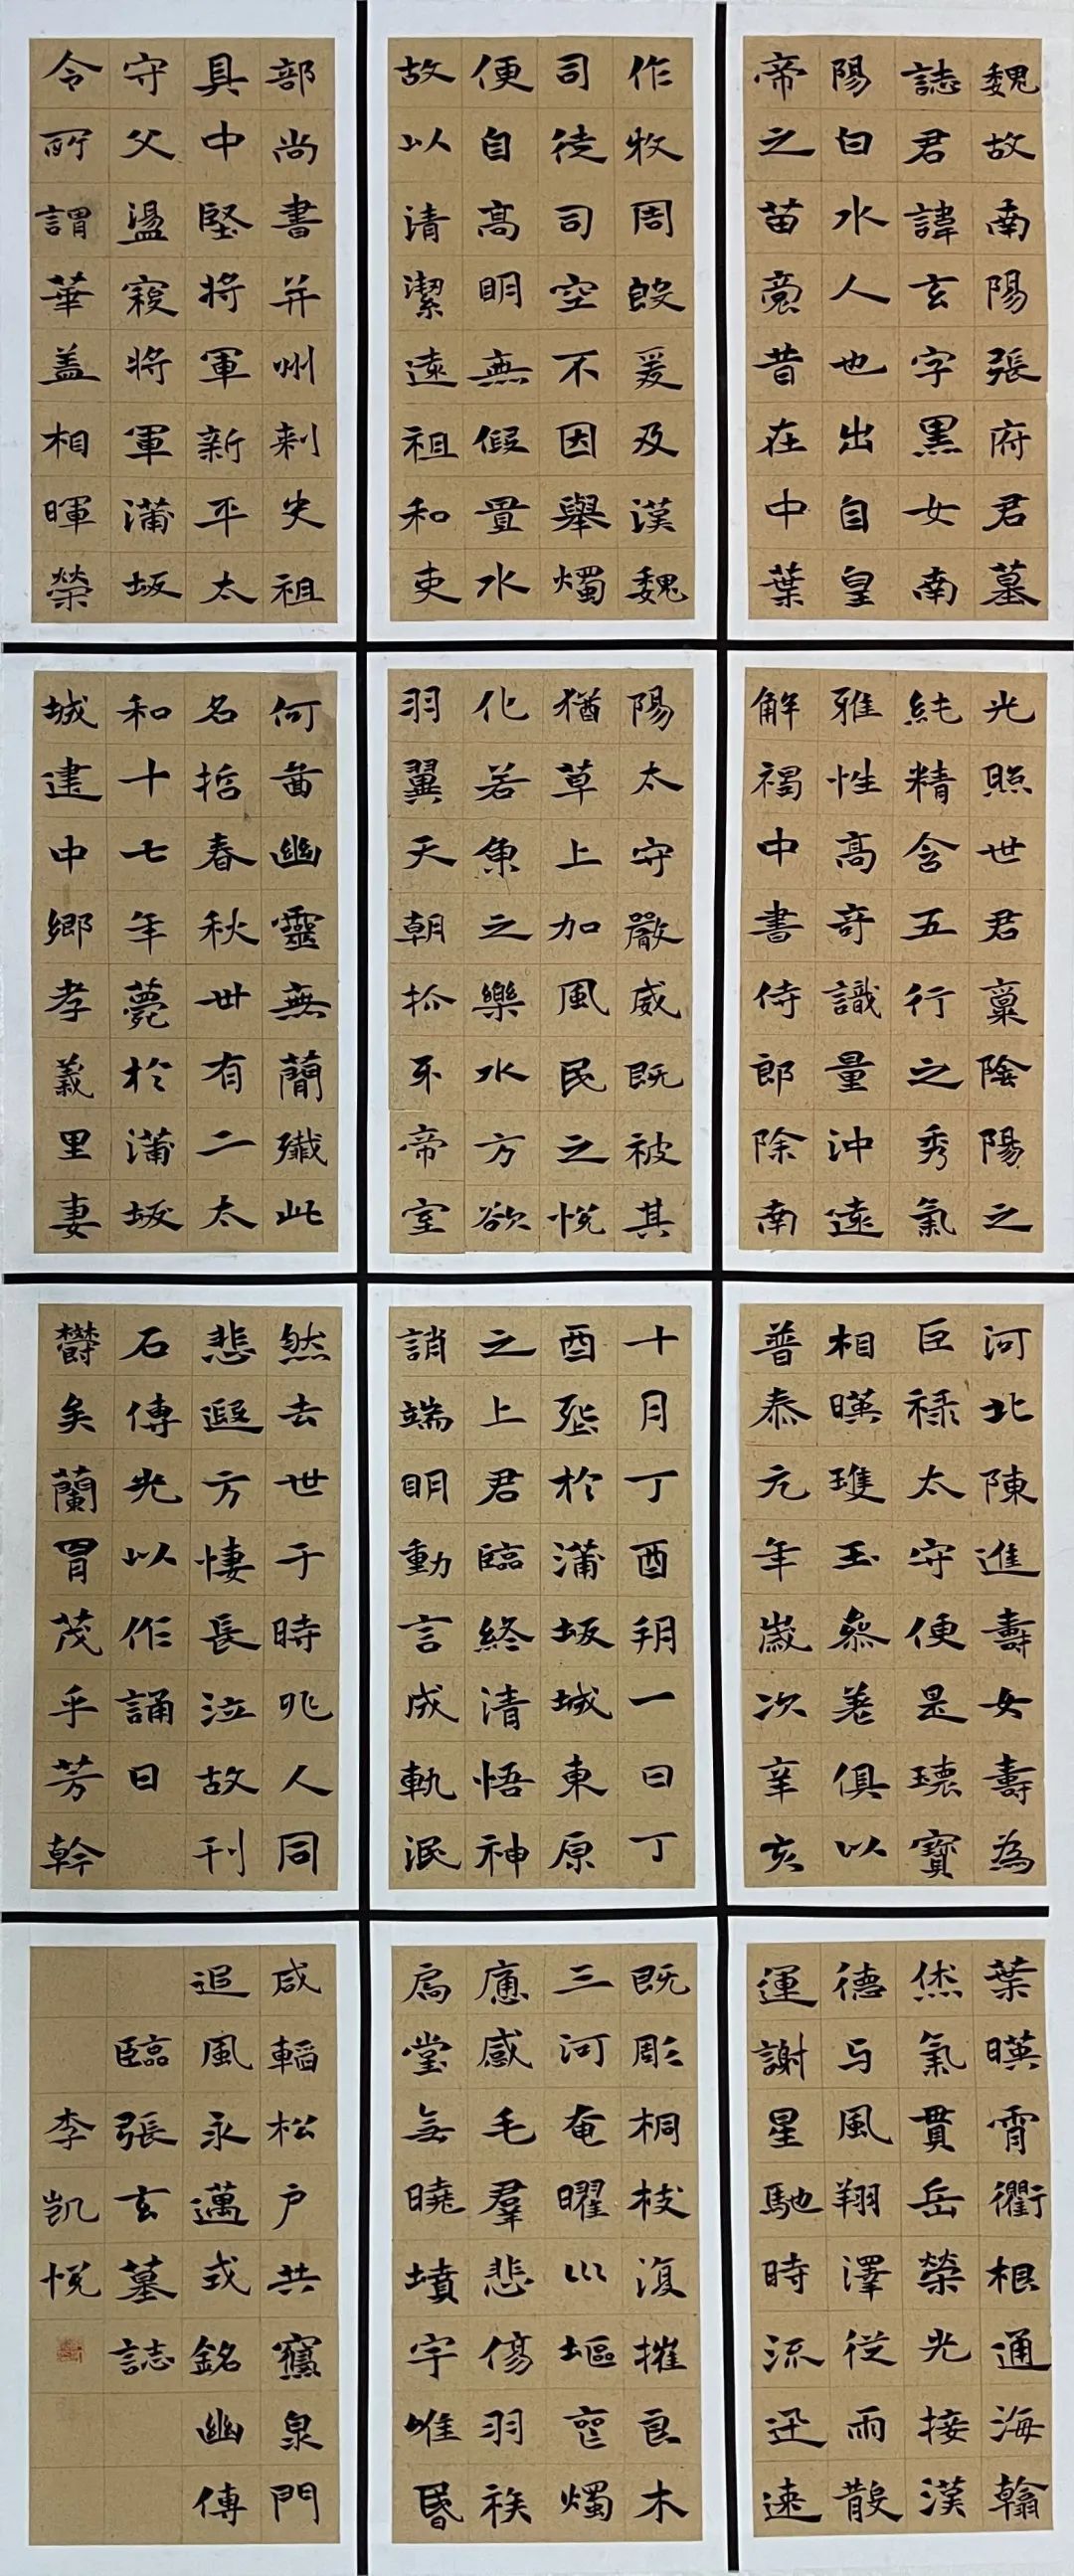 魏故南陽張府君墓
誌君諱玄字黑女南
陽白水人也出自皇
帝之苗裔昔在中葉
作牧周殷爰及漢魏
司徒司空不因舉燭
便自高明無假置水
故以清潔遠祖和吏
部尚書并州刺史祖
具中堅將軍新平太
守父盪寇將軍蒲坂
令所謂華蓋相暉榮
光照世君稟陰陽之
純精含五行之秀氣
雅性高奇識量沖遠
解褐中書侍郎除南
陽太守嚴威既被其
猶草上加風民之悅
化若魚之樂水方欲
羽翼天朝抓牙帝室
何啚幽靈無蕳殲此
名哲春秋卅有二太
和十七年薨於蒲坂
城建中鄉孝義里妻
河北陳進壽女壽為
巨祿太守便是瓌寶
相暎璡玉參差俱以
普泰元年歲次辛亥
十月丁酉朔一日丁
酉塟於蒲坂城東原
之上君臨終清悟神
誚端明動言成軌泯
然去世于時兆人同
悲遐方悽長泣故刊
石傳光以作誦曰
欝矣蘭胄茂乎芳幹
葉暎霄衢根通海翰
烋氣貫岳榮光接漢
德与風翔澤從雨散
運謝星馳時流迅速
既彫桐枝復摧良木
三河奄曜川嶇㐮燭
痝感毛羣悲傷羽族
扃堂無曉墳宇唯昬
咸韜松戶共寱泉門
追風永邁式銘幽傳
臨張玄墓誌
李凯悅